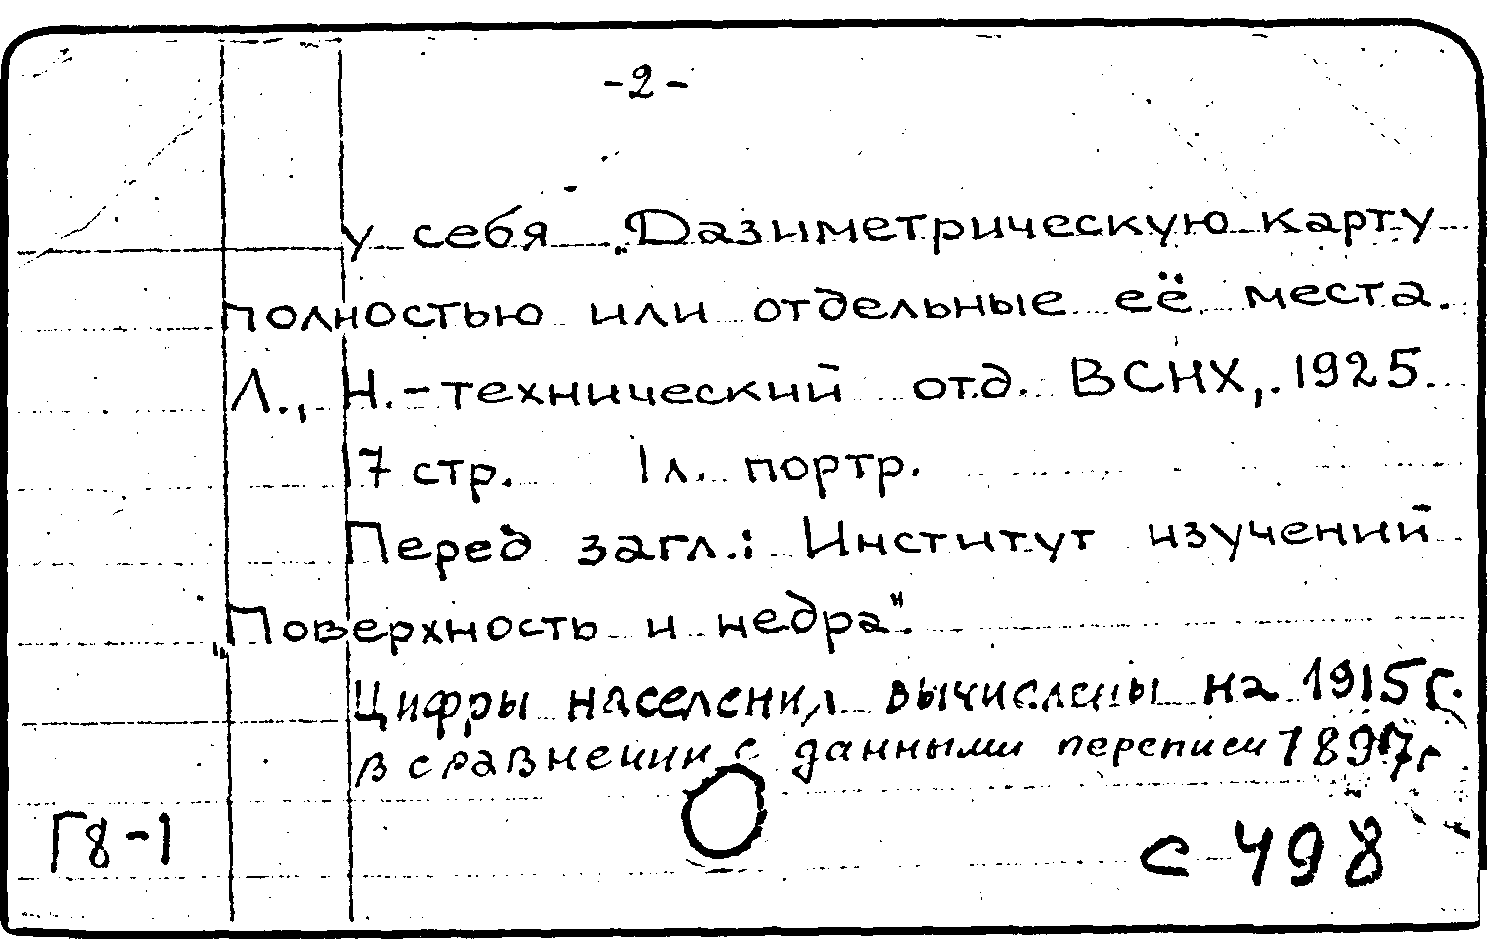 -2-
у себя „Дазиметрическую карту
полностью или отдельные её места.
Л., Н.-технический отд. ВСНХ, 1925.
17 стр. 1 л. портр.
Перед загл.: Институт изучений
„Поверхность и недра".
Цифры населения вычислены на 1915 г.
в сравнении с данными переписи 1897 г
Г8-1
с 498